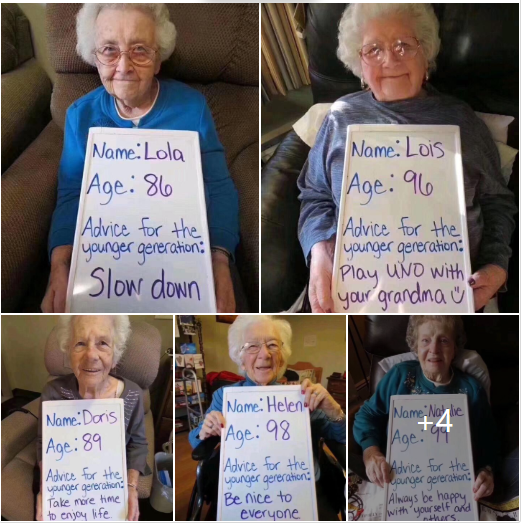 Name: Lola
Age: 86
Advice for the
younger generation:
Slow down
Name: Lois
Age: 96
Advice for the
younger generation:
Play UNO with
your grandma
Name: Doris
Age: 89
Advice for the
younger generation:
Take more time
to enjoy life
Name: Helen
Age: 98
Advice for the
younger generation:
Be nice to
everyone
Name: Natalie
+4
Age:
Advice for the
younger generation:
Always be happy
with yourself and
others